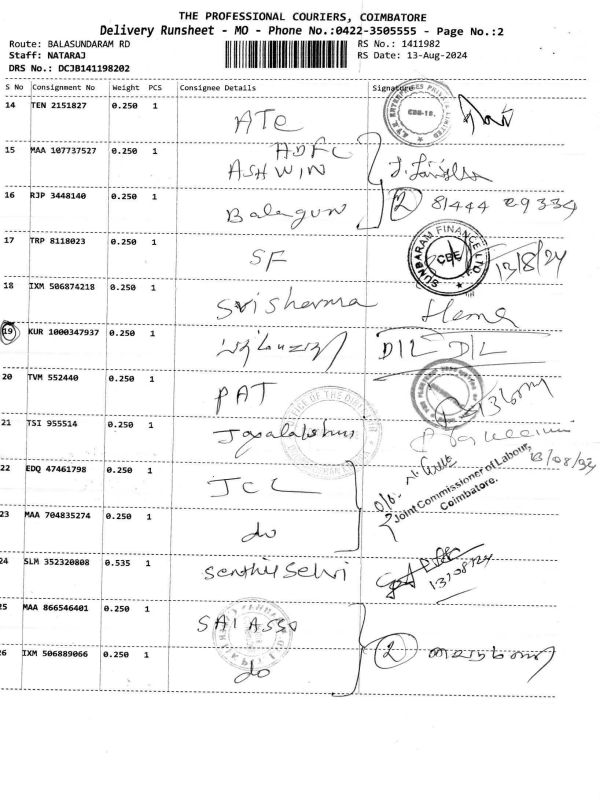 THE PROFESSIONAL COURIERS, COIMBATORE
Delivery Runsheet - MO - Phone No.:0422-3505555 - Page No.:2
Route: BALASUNDARAM RD RS No.: 1411982
Staff: NATARAJ RS Date: 13-Aug-2024
DRS No.: DCJB141198202
S No Consignment No Weight PCS Consignee Details Signature
14 TEN 2151827 0.250 1 ATC
15 MAA 107737527 0.250 1 HDFC
ASHWIN
16 RJP 3448140 0.250 1 Balagun 2 81444 29334
17 TRP 8118023 0.250 1 SF SUNDARAM FINANCE LTD. CBE 13/8/24
18 IXM 506874218 0.250 1 Sri Sharma Hema
19 KUR 1000347937 0.250 1 D/L D/L
20 TVM 552440 0.250 1 PAT
21 TSI 955514 0.250 1 13/08/24
22 EDQ 47461798 0.250 1 JCL Joint Commissioner of Labour,
Coimbatore.
23 MAA 704835274 0.250 1 do
24 SLM 352320808 0.535 1 Senthil Selvi 13/08/24
25 MAA 866546401 0.250 1 SAI ASSO
26 IXM 506889066 0.250 1 do 2